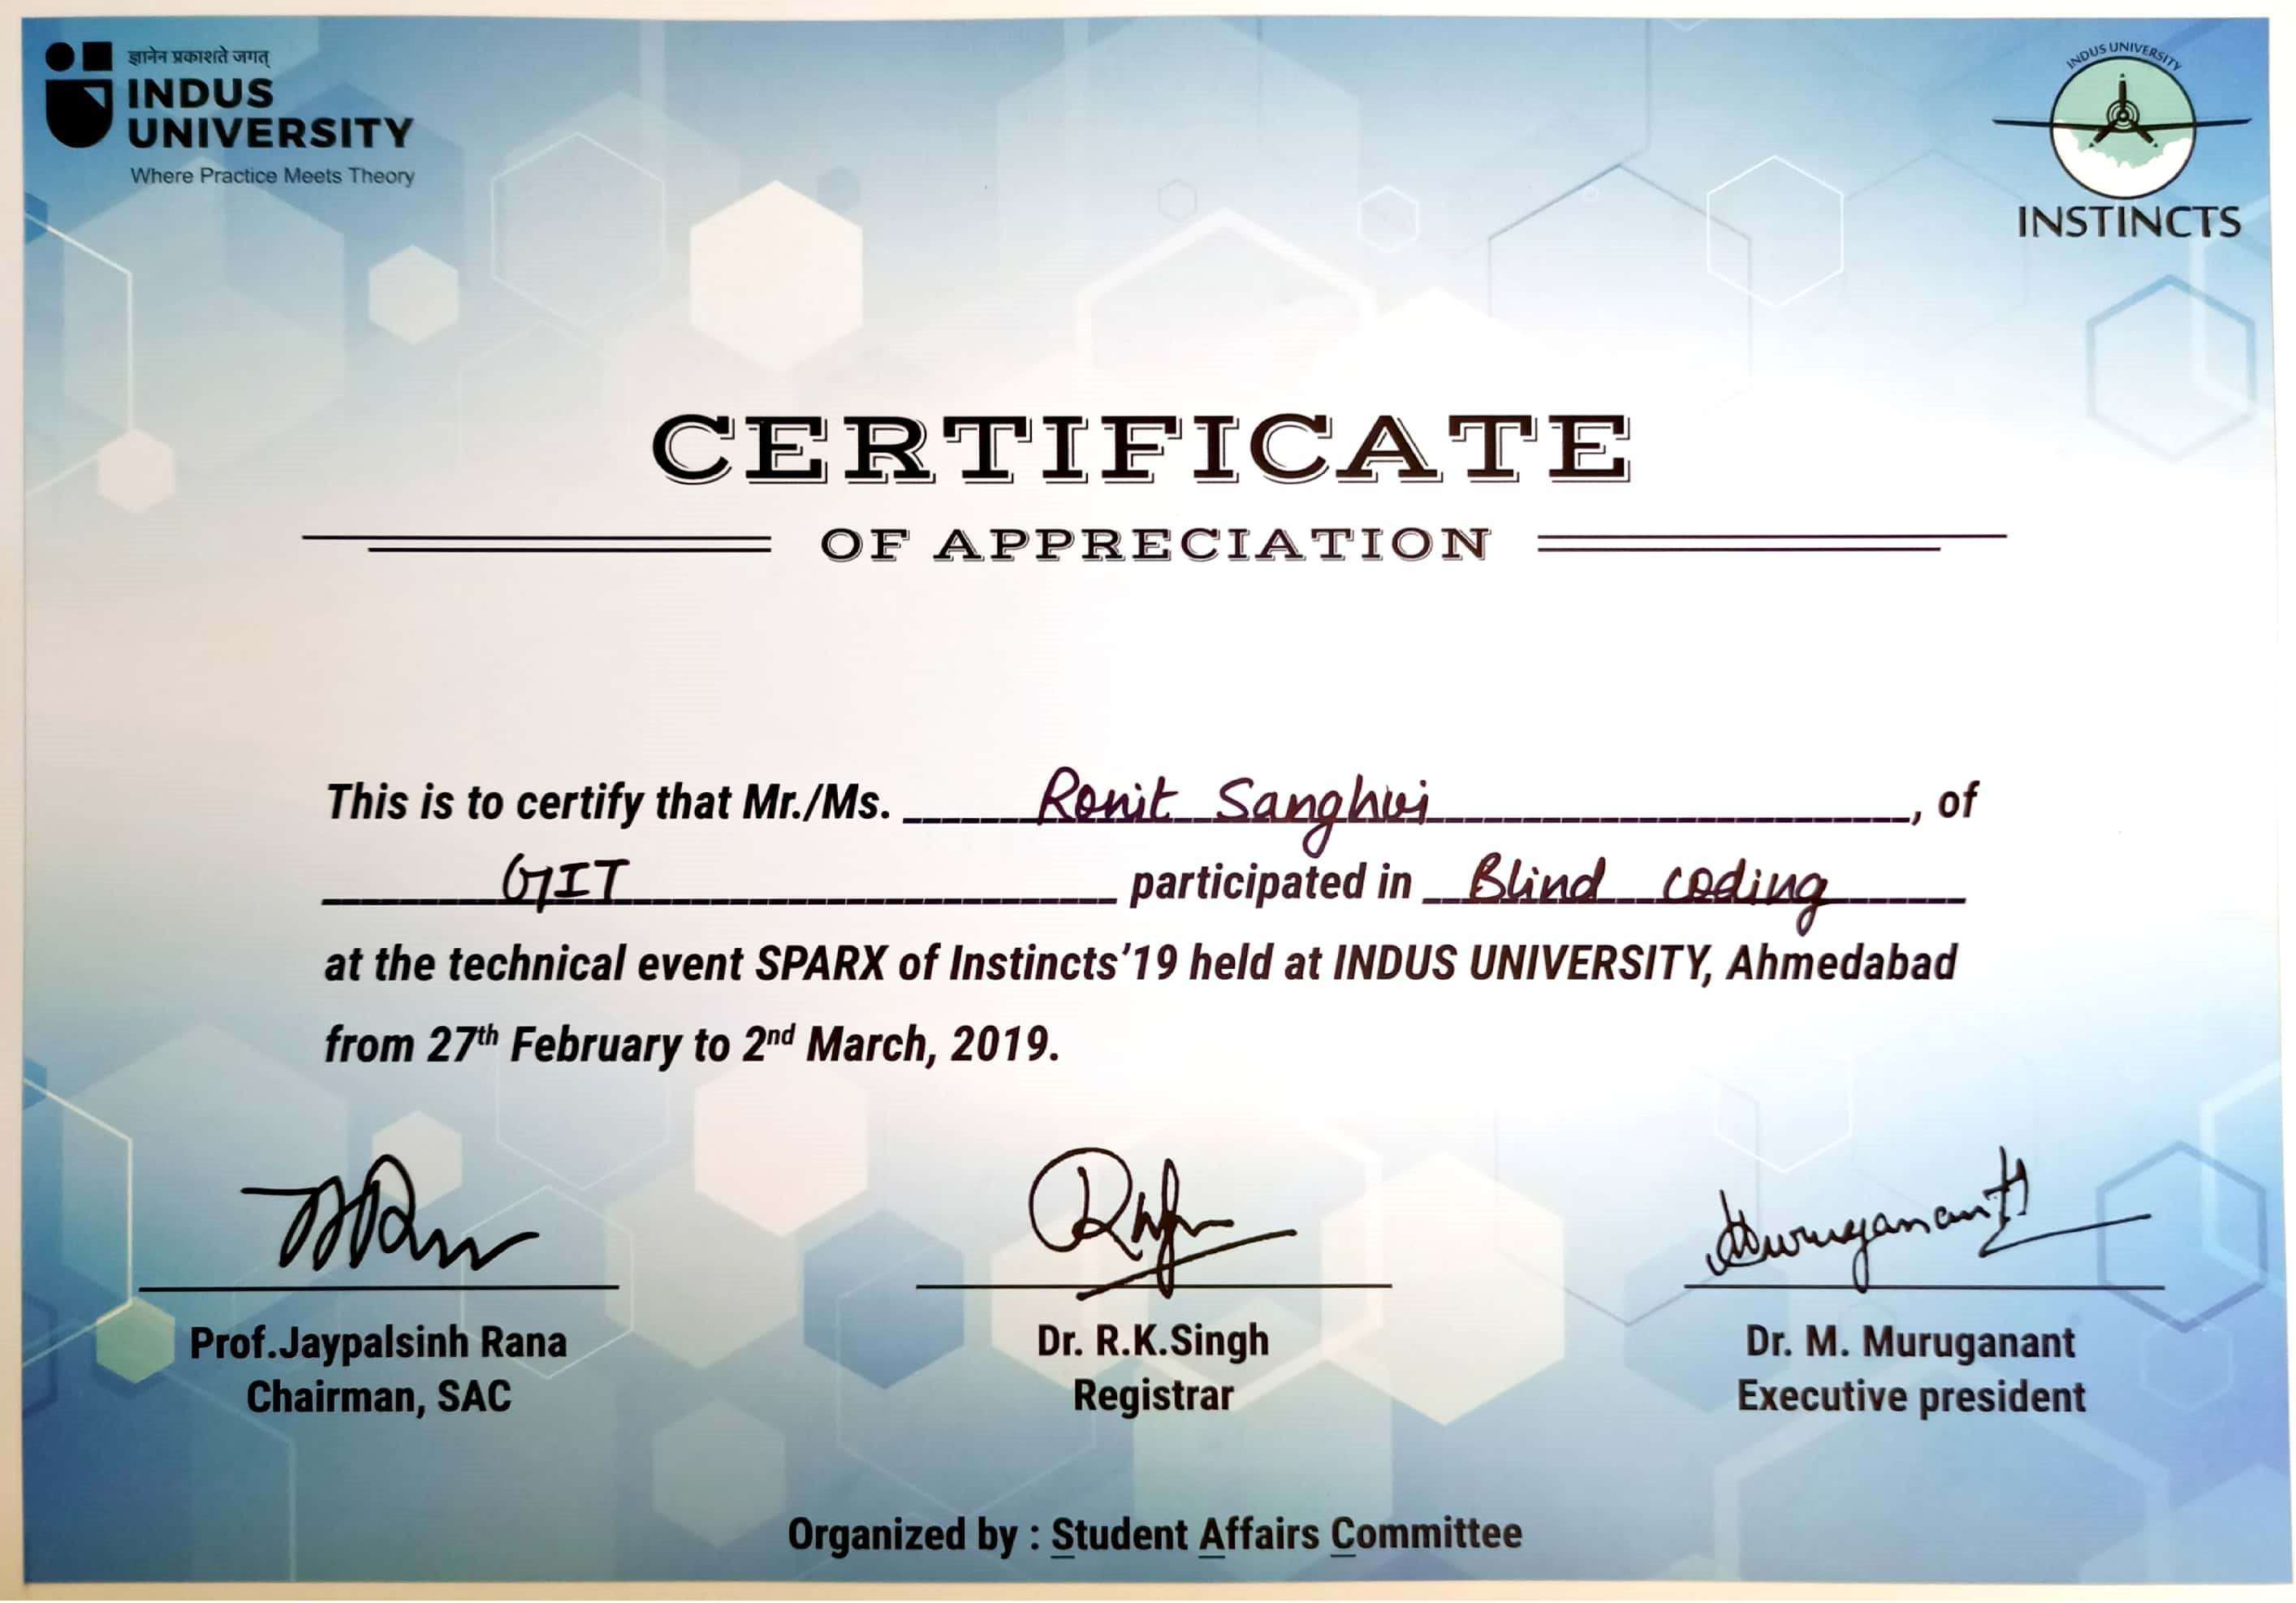 ज्ञानेन प्रकाशते जगत्
INDUS
UNIVERSITY
Where Practice Meets Theory
INDUS UNIVERSITY
INSTINCTS
CERTIFICATE
OF APPRECIATION
This is to certify that Mr./Ms. Ronit Sanghvi, of
GIT participated in Blind coding
at the technical event SPARX of Instincts'19 held at INDUS UNIVERSITY, Ahmedabad
from 27th February to 2nd March, 2019.
Muruganant
Prof.Jaypalsinh Rana
Chairman, SAC
Dr. R.K.Singh
Registrar
Dr. M. Muruganant
Executive president
Organized by : Student Affairs Committee